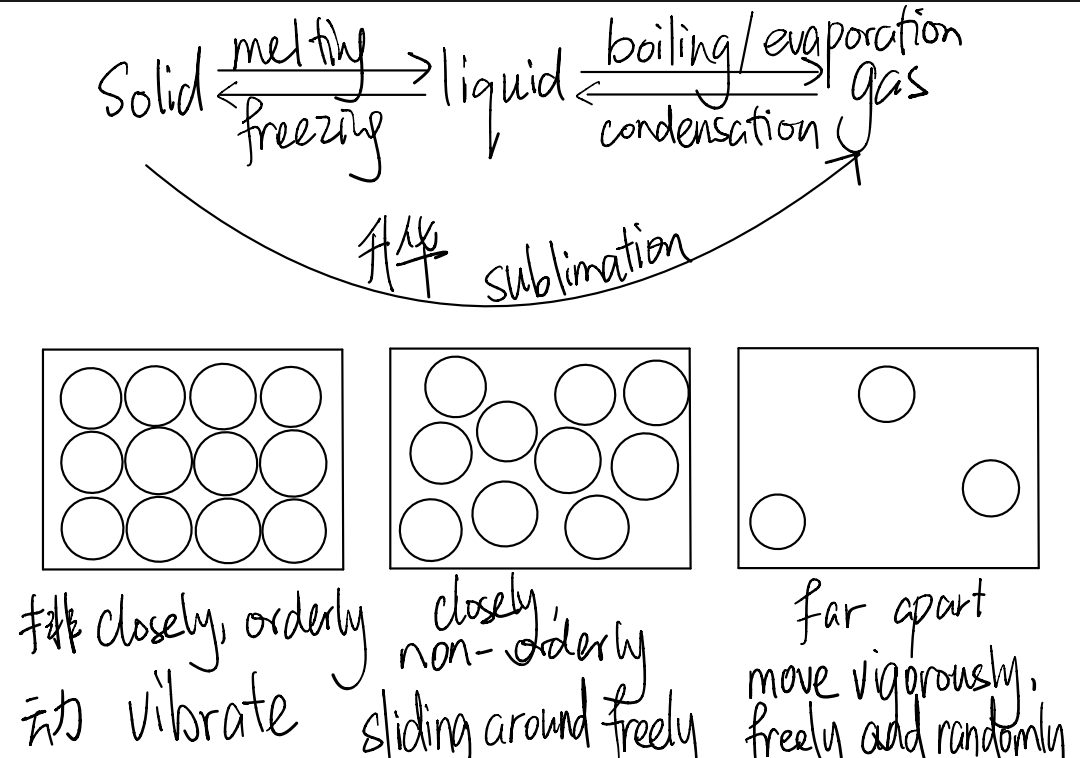 melting boiling/evaporation
Solid liquid gas
freezing condensation
升华 sublimation
排 closely, orderly
动 vibrate
closely,
non-orderly
sliding around freely
far apart
move vigorously,
freely and randomly